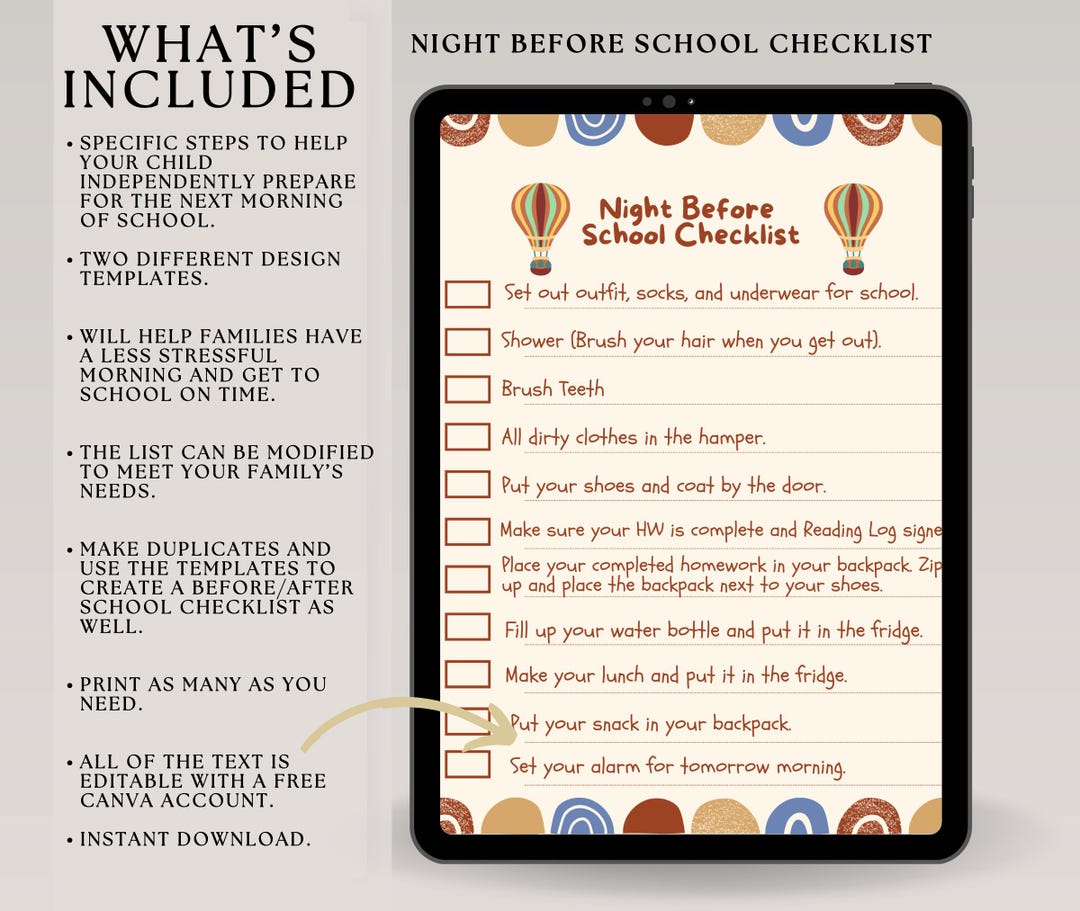 WHAT'S
INCLUDED
• SPECIFIC STEPS TO HELP
YOUR CHILD
INDEPENDENTLY PREPARE
FOR THE NEXT MORNING
OF SCHOOL.
• TWO DIFFERENT DESIGN
TEMPLATES.
• WILL HELP FAMILIES HAVE
A LESS STRESSFUL
MORNING AND GET TO
SCHOOL ON TIME.
• THE LIST CAN BE MODIFIED
TO MEET YOUR FAMILY'S
NEEDS.
• MAKE DUPLICATES AND
USE THE TEMPLATES TO
CREATE A BEFORE/AFTER
SCHOOL CHECKLIST AS
WELL.
• PRINT AS MANY AS YOU
NEED.
• ALL OF THE TEXT IS
EDITABLE WITH A FREE
CANVA ACCOUNT.
• INSTANT DOWNLOAD.
NIGHT BEFORE SCHOOL CHECKLIST
Night Before
School Checklist
Set out outfit, socks, and underwear for school.
Shower (Brush your hair when you get out).
Brush Teeth
All dirty clothes in the hamper.
Put your shoes and coat by the door.
Make sure your HW is complete and Reading Log signe
Place your completed homework in your backpack. Zip
up and place the backpack next to your shoes.
Fill up your water bottle and put it in the fridge.
Make your lunch and put it in the fridge.
Put your snack in your backpack.
Set your alarm for tomorrow morning.